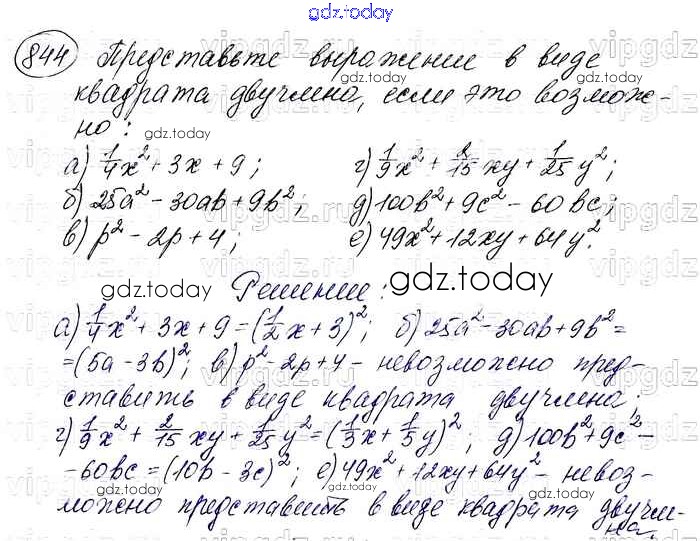 gdz.today
844 Представьте выражение в виде
квадрата двучлена, если это возмож-
но:
gdz.today
а) 1/4x² + 3x + 9; г) 1/9x² + 2/15xy + 1/25y²;
б) 25a² - 30ab + 9b²; д) 100b² + 9c² - 60bc;
в) p² - 2p + 4; е) 49x² + 12xy + 64y².
gdz.today Решение: gdz.today
а) 1/4x² + 3x + 9 = (1/2x + 3)²; б) 25a² - 30ab + 9b² =
= (5a - 3b)²; в) p² - 2p + 4 - невозможно пред-
ставить в виде квадрата двучлена;
г) 1/9x² + 2/15xy + 1/25y² = (1/3x + 1/5y)²; д) 100b² + 9c² -
- 60bc = (10b - 3c)²; е) 49x² + 12xy + 64y² - невоз-
можно представить в виде квадрата двучле-
на.